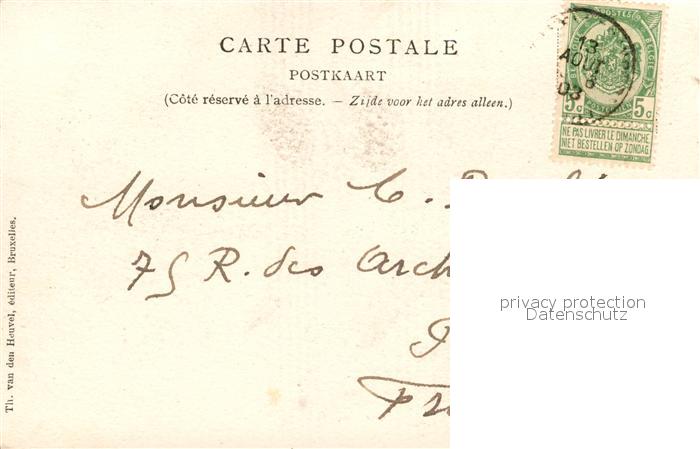 CARTE POSTALE
POSTKAART
(Côté réservé à l'adresse. — Zijde voor het adres alleen.)
POSTES
13
AOUT
8
03
5c 5c
NE PAS LIVRER LE DIMANCHE
NIET BESTELLEN OP ZONDAG
Monsieur C.
75 R. des Arch
Th. van den Heuvel, éditeur, Bruxelles.
privacy protection
Datenschutz